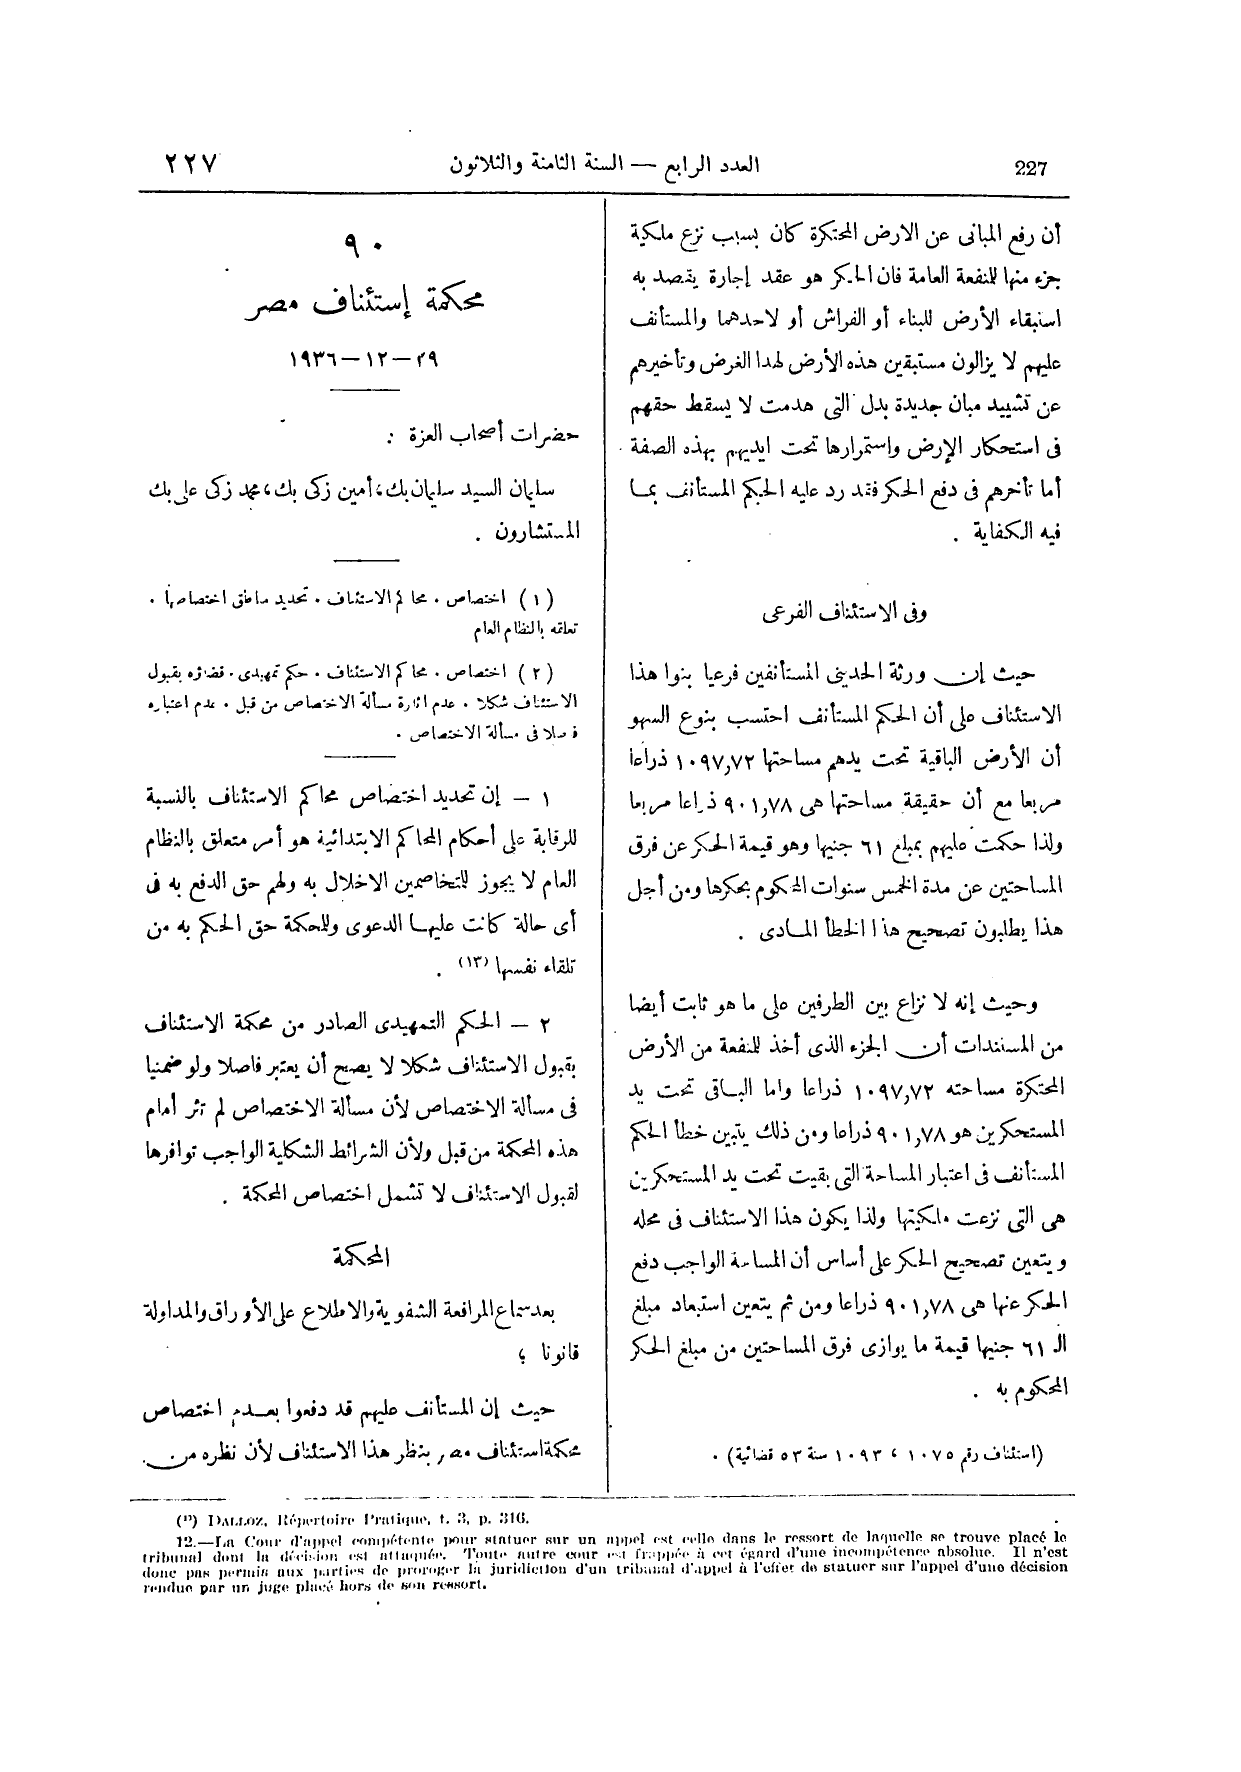 227
العدد الرابع — السنة الثامنة والثلاثون
٢٢٧
أن رفع المبانى عن الارض المحتكرة كان بسبب نزع ملكية
جزء منها للنفعة العامة فان الحكر هو عقد إجارة يقصد به
استبقاء الأرض للبناء أو الفراش أو لاحدهما والمستأنف
عليهم لا يزالون مستبقين هذه الأرض لهذا الغرض وتأخيرهم
عن تشييد مبان جديدة بدل التى هدمت لا يسقط حقهم
فى استحكار الارض واستمرارها تحت ايديهم بهذه الصفة
أما تأخرهم فى دفع الحكر فقد رد عليه الحكم المستأنف بما
فيه الكفاية .
وفى الاستئناف الفرعى
حيث إن ورثة الحدينى المستأنفين فرعيا بنوا هذا
الاستئناف على أن الحكم المستأنف احتسب بنوع السهو
أن الأرض الباقية تحت يدهم مساحتها ١٠٩٧,٧٢ ذراعا
مربعا مع أن حقيقة مساحتها هى ٩٠١,٧٨ ذراعا مربعا
ولذا حكمت عليهم بمبلغ ٦١ جنيها وهو قيمة الحكر عن فرق
المساحتين عن مدة الخمس سنوات المحكوم بحكرها ومن أجل
هذا يطلبون تصحيح هذا الخطأ المادى .
وحيث إنه لا نزاع بين الطرفين على ما هو ثابت أيضا
من المستندات أن الجزء الذى أخذ للنفعة من الأرض
المحتكرة مساحته ١٠٩٧,٧٢ ذراعا واما الباقى تحت يد
المستحكرين هو ٩٠١,٧٨ ذراعا ومن ذلك يتبين خطأ الحكم
المستأنف فى اعتبار المساحة التى بقيت تحت يد المستحكرين
هى التى نزعت ملكيتها ولذا يكون هذا الاستئناف فى محله
ويتعين تصحيح الحكر على أساس أن المساحة الواجب دفع
الحكر عنها هى ٩٠١,٧٨ ذراعا ومن ثم يتعين استبعاد مبلغ
الـ ٦١ جنيها قيمة ما يوازى فرق المساحتين من مبلغ الحكر
المحكوم به .
(استئناف رقم ١٠٧٥ ، ١٠٩٣ سنة ٥٣ قضائية) .
٩٠
محكمة إستئناف مصر
٢٩-١٢-١٩٣٦
حضرات أصحاب العزة :
سليمان السيد سليمان بك، أمين زكى بك، محمد زكى على بك
المستشارون .
(١) اختصاص . محاكم الاستئناف . تحديد مناطق اختصاصها .
تعلقه بالنظام العام
(٢) اختصاص . محاكم الاستئناف . حكم تمهيدى . قضاؤه بقبول
الاستئناف شكلا . عدم اثارة مسألة الاختصاص من قبل . عدم اعتباره
فصلا فى مسألة الاختصاص .
١ – إن تحديد اختصاص محاكم الاستئناف بالنسبة
للرقابة على أحكام المحاكم الابتدائية هو أمر متعلق بالنظام
العام لا يجوز للتخاصمين الاخلال به ولهم حق الدفع به فى
أى حالة كانت عليها الدعوى وللمحكمة حق الحكم به من
تلقاء نفسها (١٣) .
٢ – الحكم التمهيدى الصادر من محكمة الاستئناف
بقبول الاستئناف شكلا لا يصح أن يعتبر فاصلا ولو ضمنيا
فى مسألة الاختصاص لأن مسألة الاختصاص لم تثر أمام
هذه المحكمة من قبل ولأن الشرائط الشكلية الواجب توافرها
لقبول الاستئناف لا تشمل اختصاص المحكمة .
المحكمة
بعد سماع المرافعة الشفوية والاطلاع على الأوراق والمداولة
قانونا ؛
حيث إن المستأنف عليهم قد دفعوا بعدم اختصاص
محكمة استئناف مصر بنظر هذا الاستئناف لأن نظره من
(¹³) DALLOZ, Répertoire Pratique, t. 3, p. 316.
12.—La Cour d'appel compétente pour statuer sur un appel est celle dans le ressort de laquelle se trouve placé le
tribunal dont la décision est attaquée. Toute autre cour est frappée à cet égard d'une incompétence absolue. Il n'est
donc pas permis aux parties de proroger la juridiction d'un tribunal d'appel à l'effet de statuer sur l'appel d'une décision
rendue par un juge placé hors de son ressort.